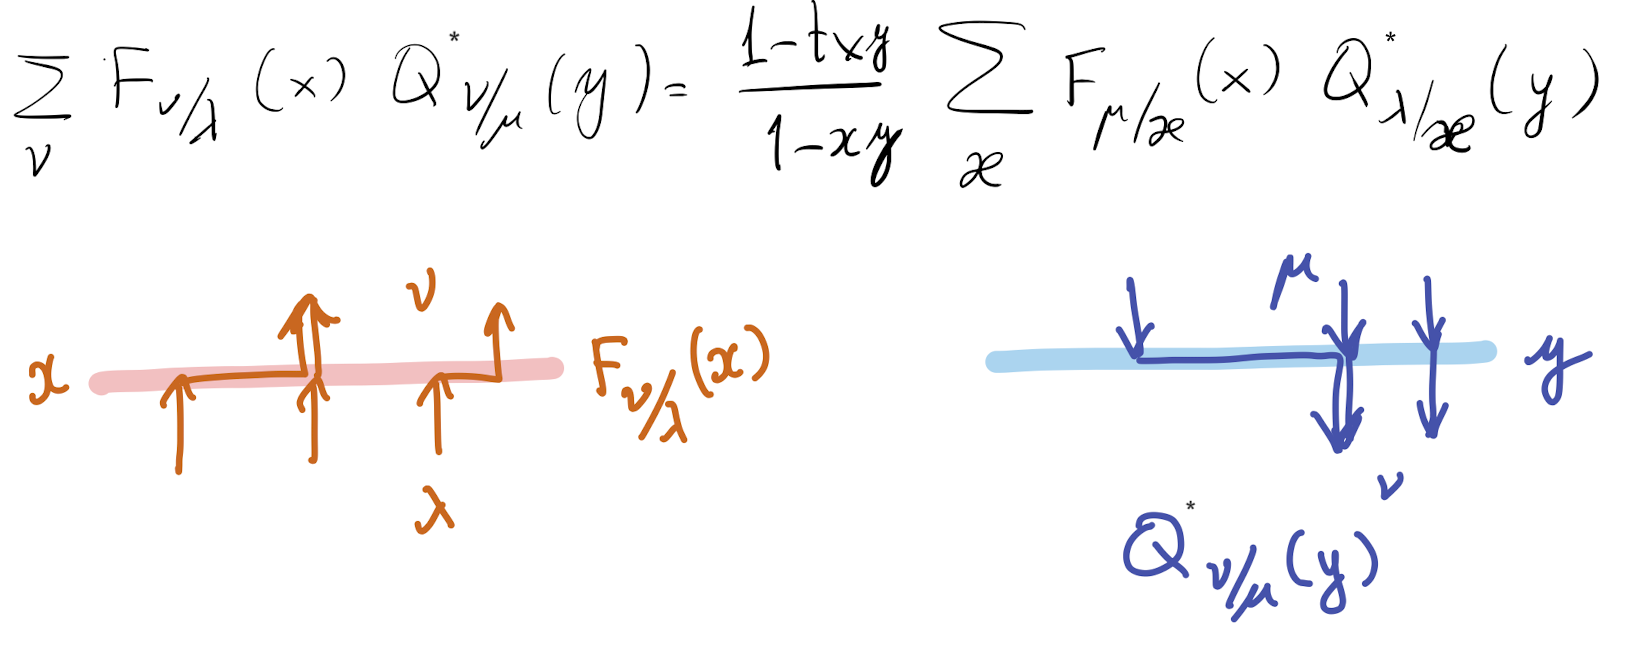 ∑_ν F_{ν/λ}(x) Q*_{ν/μ}(y) = \frac{1-txy}{1-xy} ∑_ϰ F_{μ/ϰ}(x) Q*_{λ/ϰ}(y)
ν μ
x F_{ν/λ}(x) y
λ ν
Q*_{ν/μ}(y)